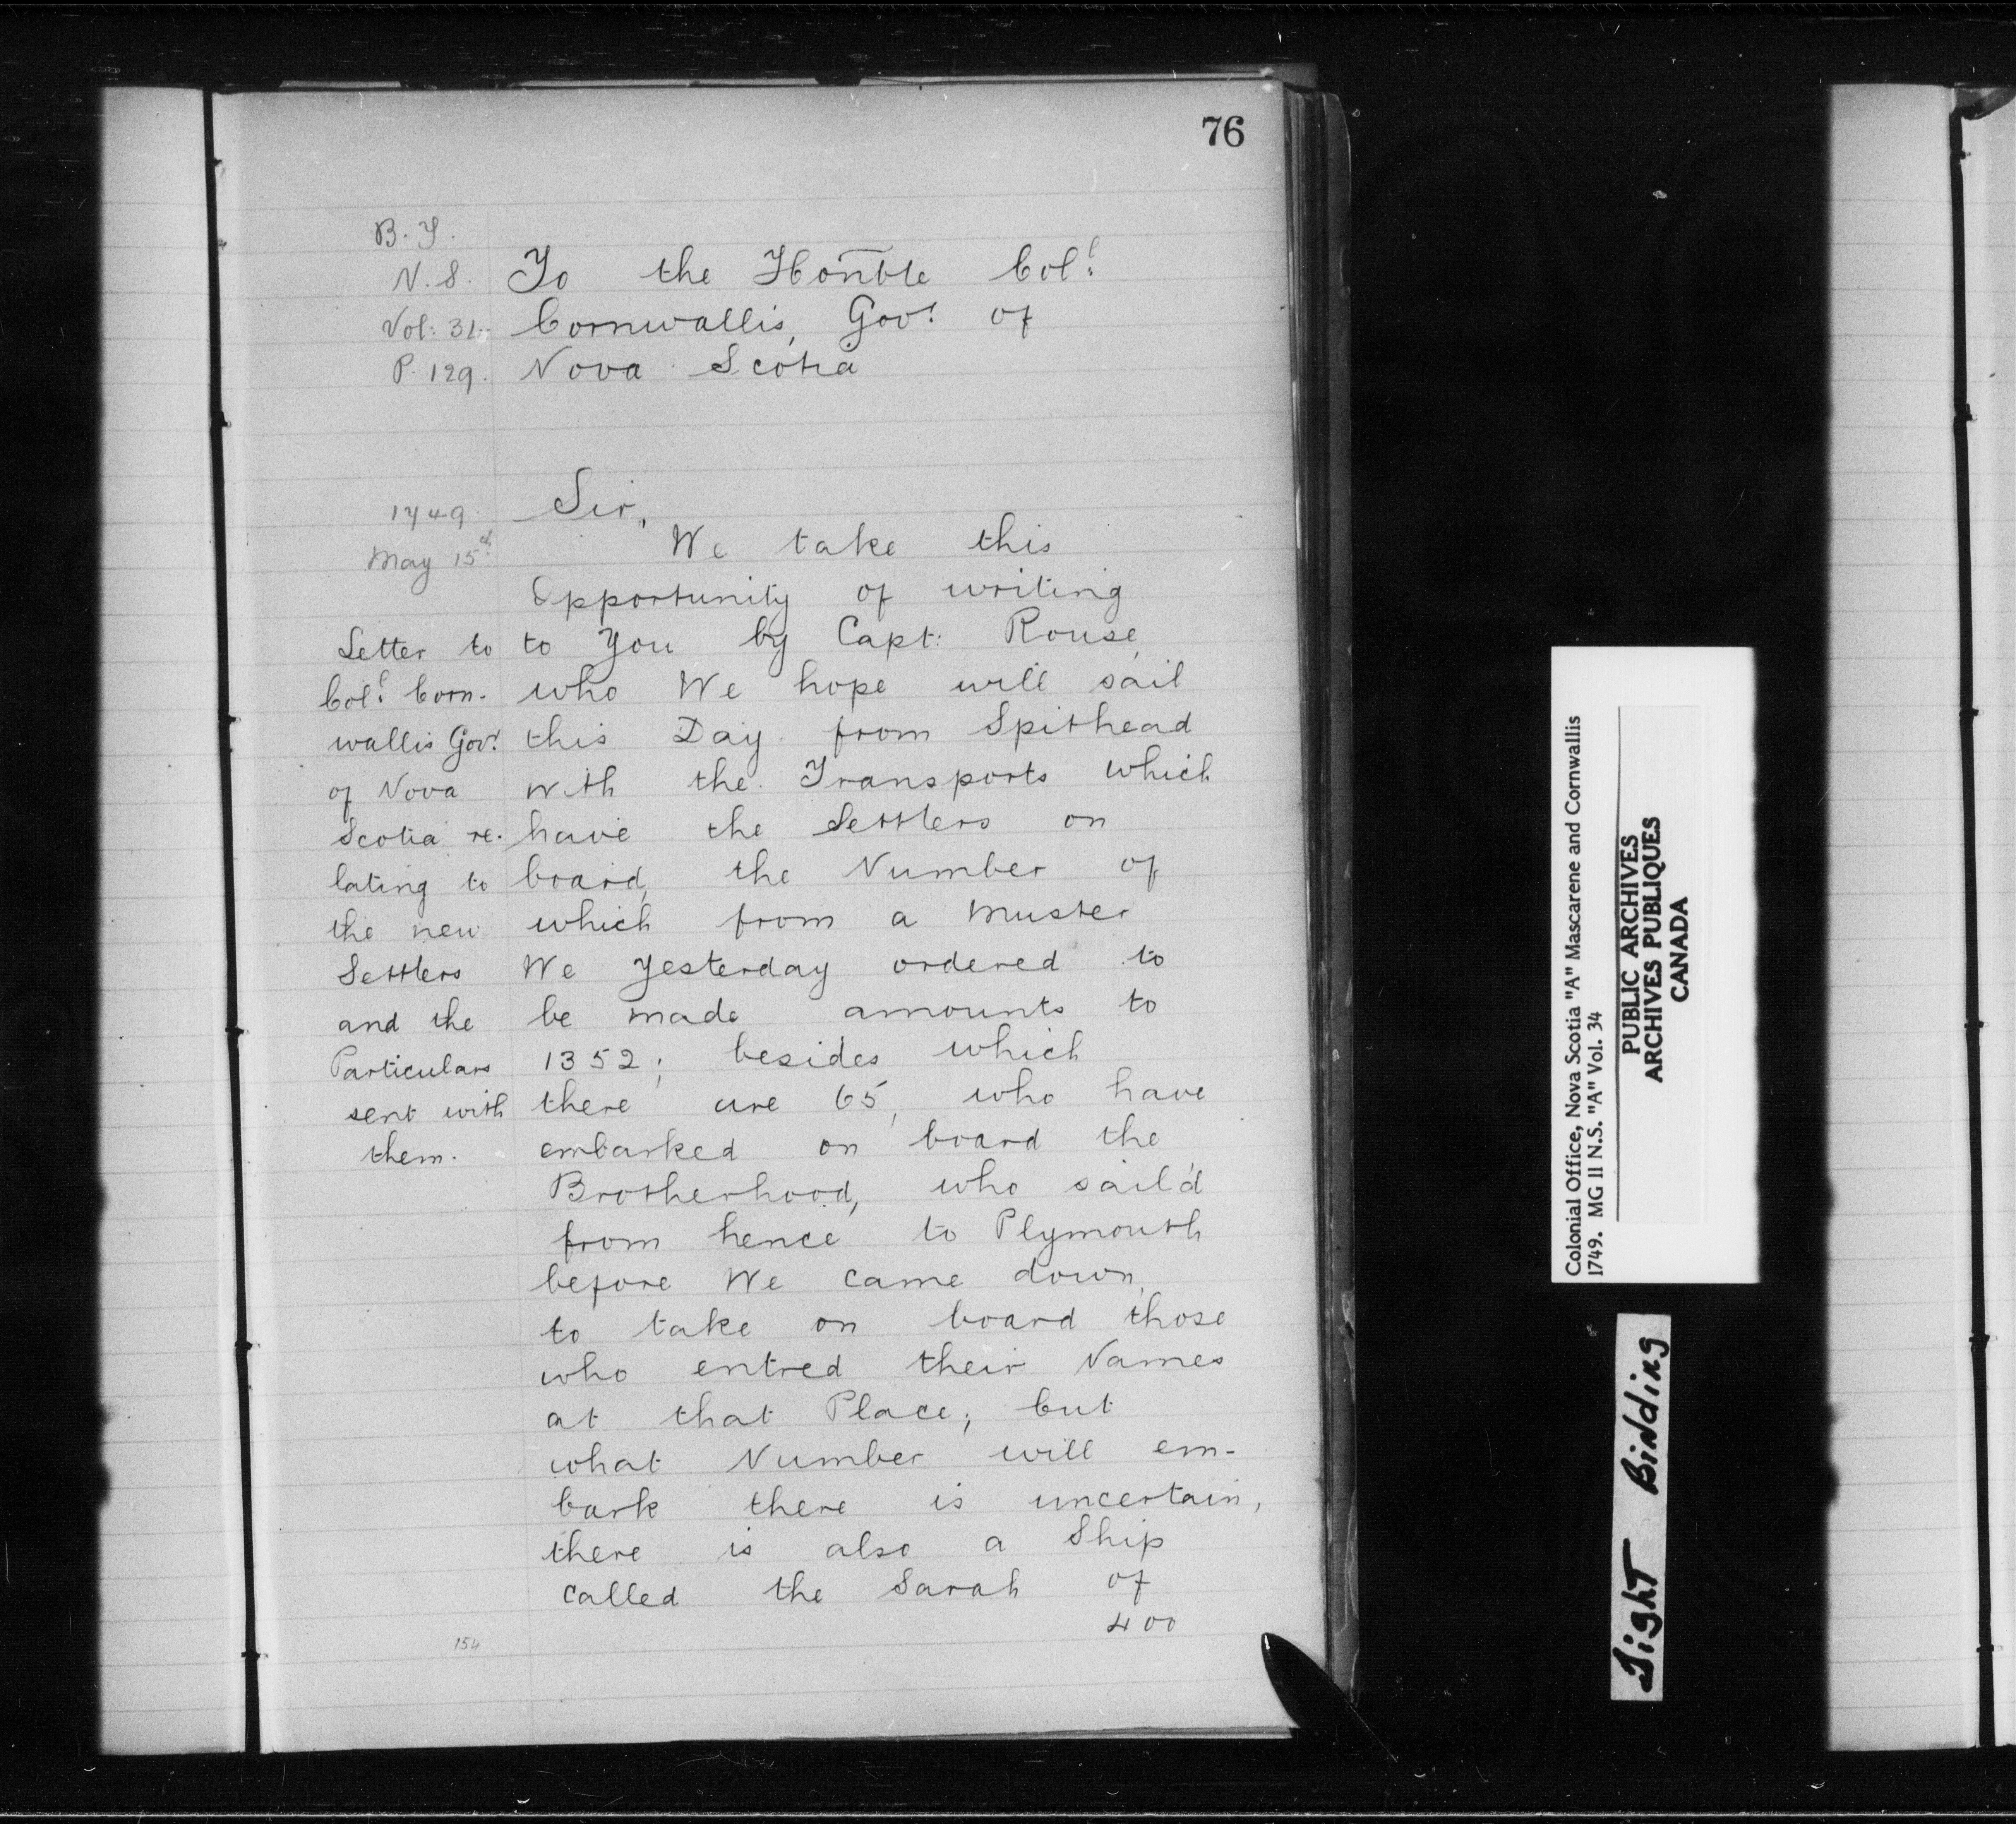 76
B.T.
N.S.
Vol: 31.
P. 129.
To the Honble Col!
Cornwallis, Gov! of
Nova Scotia
1749
May 15th
Letter to
Col! Corn-
wallis Gov!
of Nova
Scotia re-
lating to
the new
Settlers
and the
Particulars
sent with
them.
Sir,
We take this
Opportunity of writing
to You by Capt: Rouse,
who We hope will sail
this Day from Spithead
with the Transports which
have the Settlers on
board, the Number of
which from a Muster
We Yesterday ordered to
be made amounts to
1352; besides which
there are 65, who have
embarked on board the
Brotherhood, who sail'd
from hence to Plymouth
before We came down,
to take on board those
who entred their Names
at that Place; but
what Number will em-
bark there is uncertain,
there is also a Ship
called the Sarah of
400
154
Colonial Office, Nova Scotia "A" Mascarene and Cornwallis
1749. MG II N.S. "A" Vol. 34
PUBLIC ARCHIVES
ARCHIVES PUBLIQUES
CANADA
Tight Binding